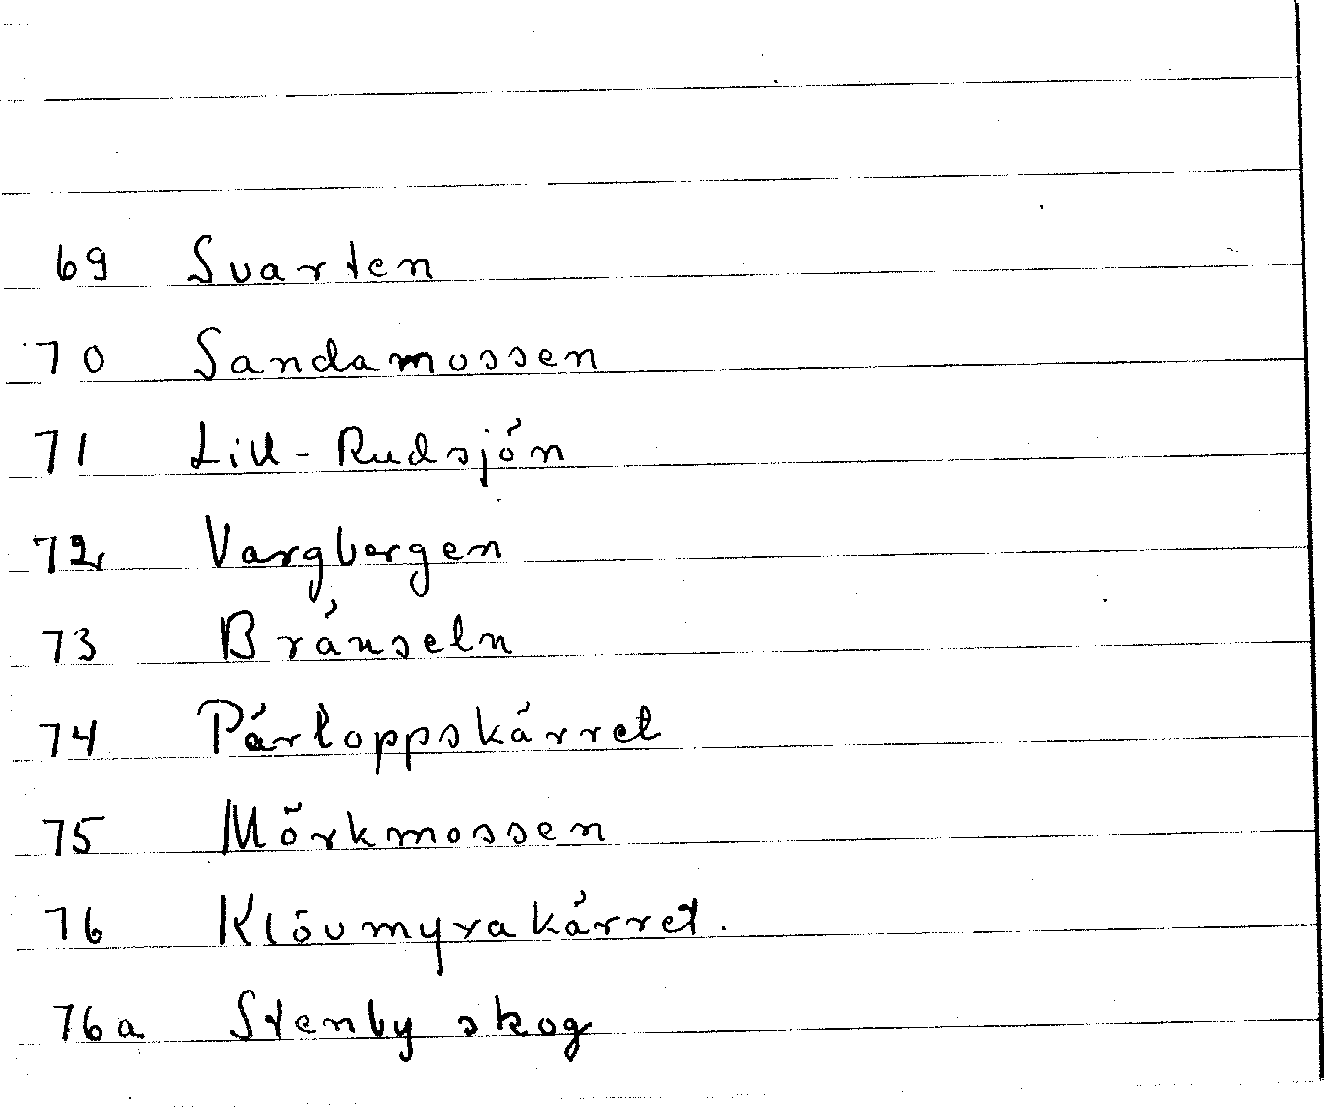 69 Svarten
70 Sandamossen
71 Lill-Rudsjön
72 Vargbergen
73 Bränseln
74 Pärloppskärret
75 Mörkmossen
76 Klövmyrakärret.
76a Stenby skog